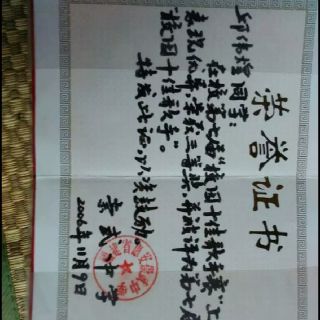 荣誉证书
邱伟煌同学：
在校第七届“校园十佳歌手赛”上
表现优异，荣获三等奖，并被评为第七届
“校园十佳歌手”。
特发此证，以资鼓励
崇武中学
2006年11月9日